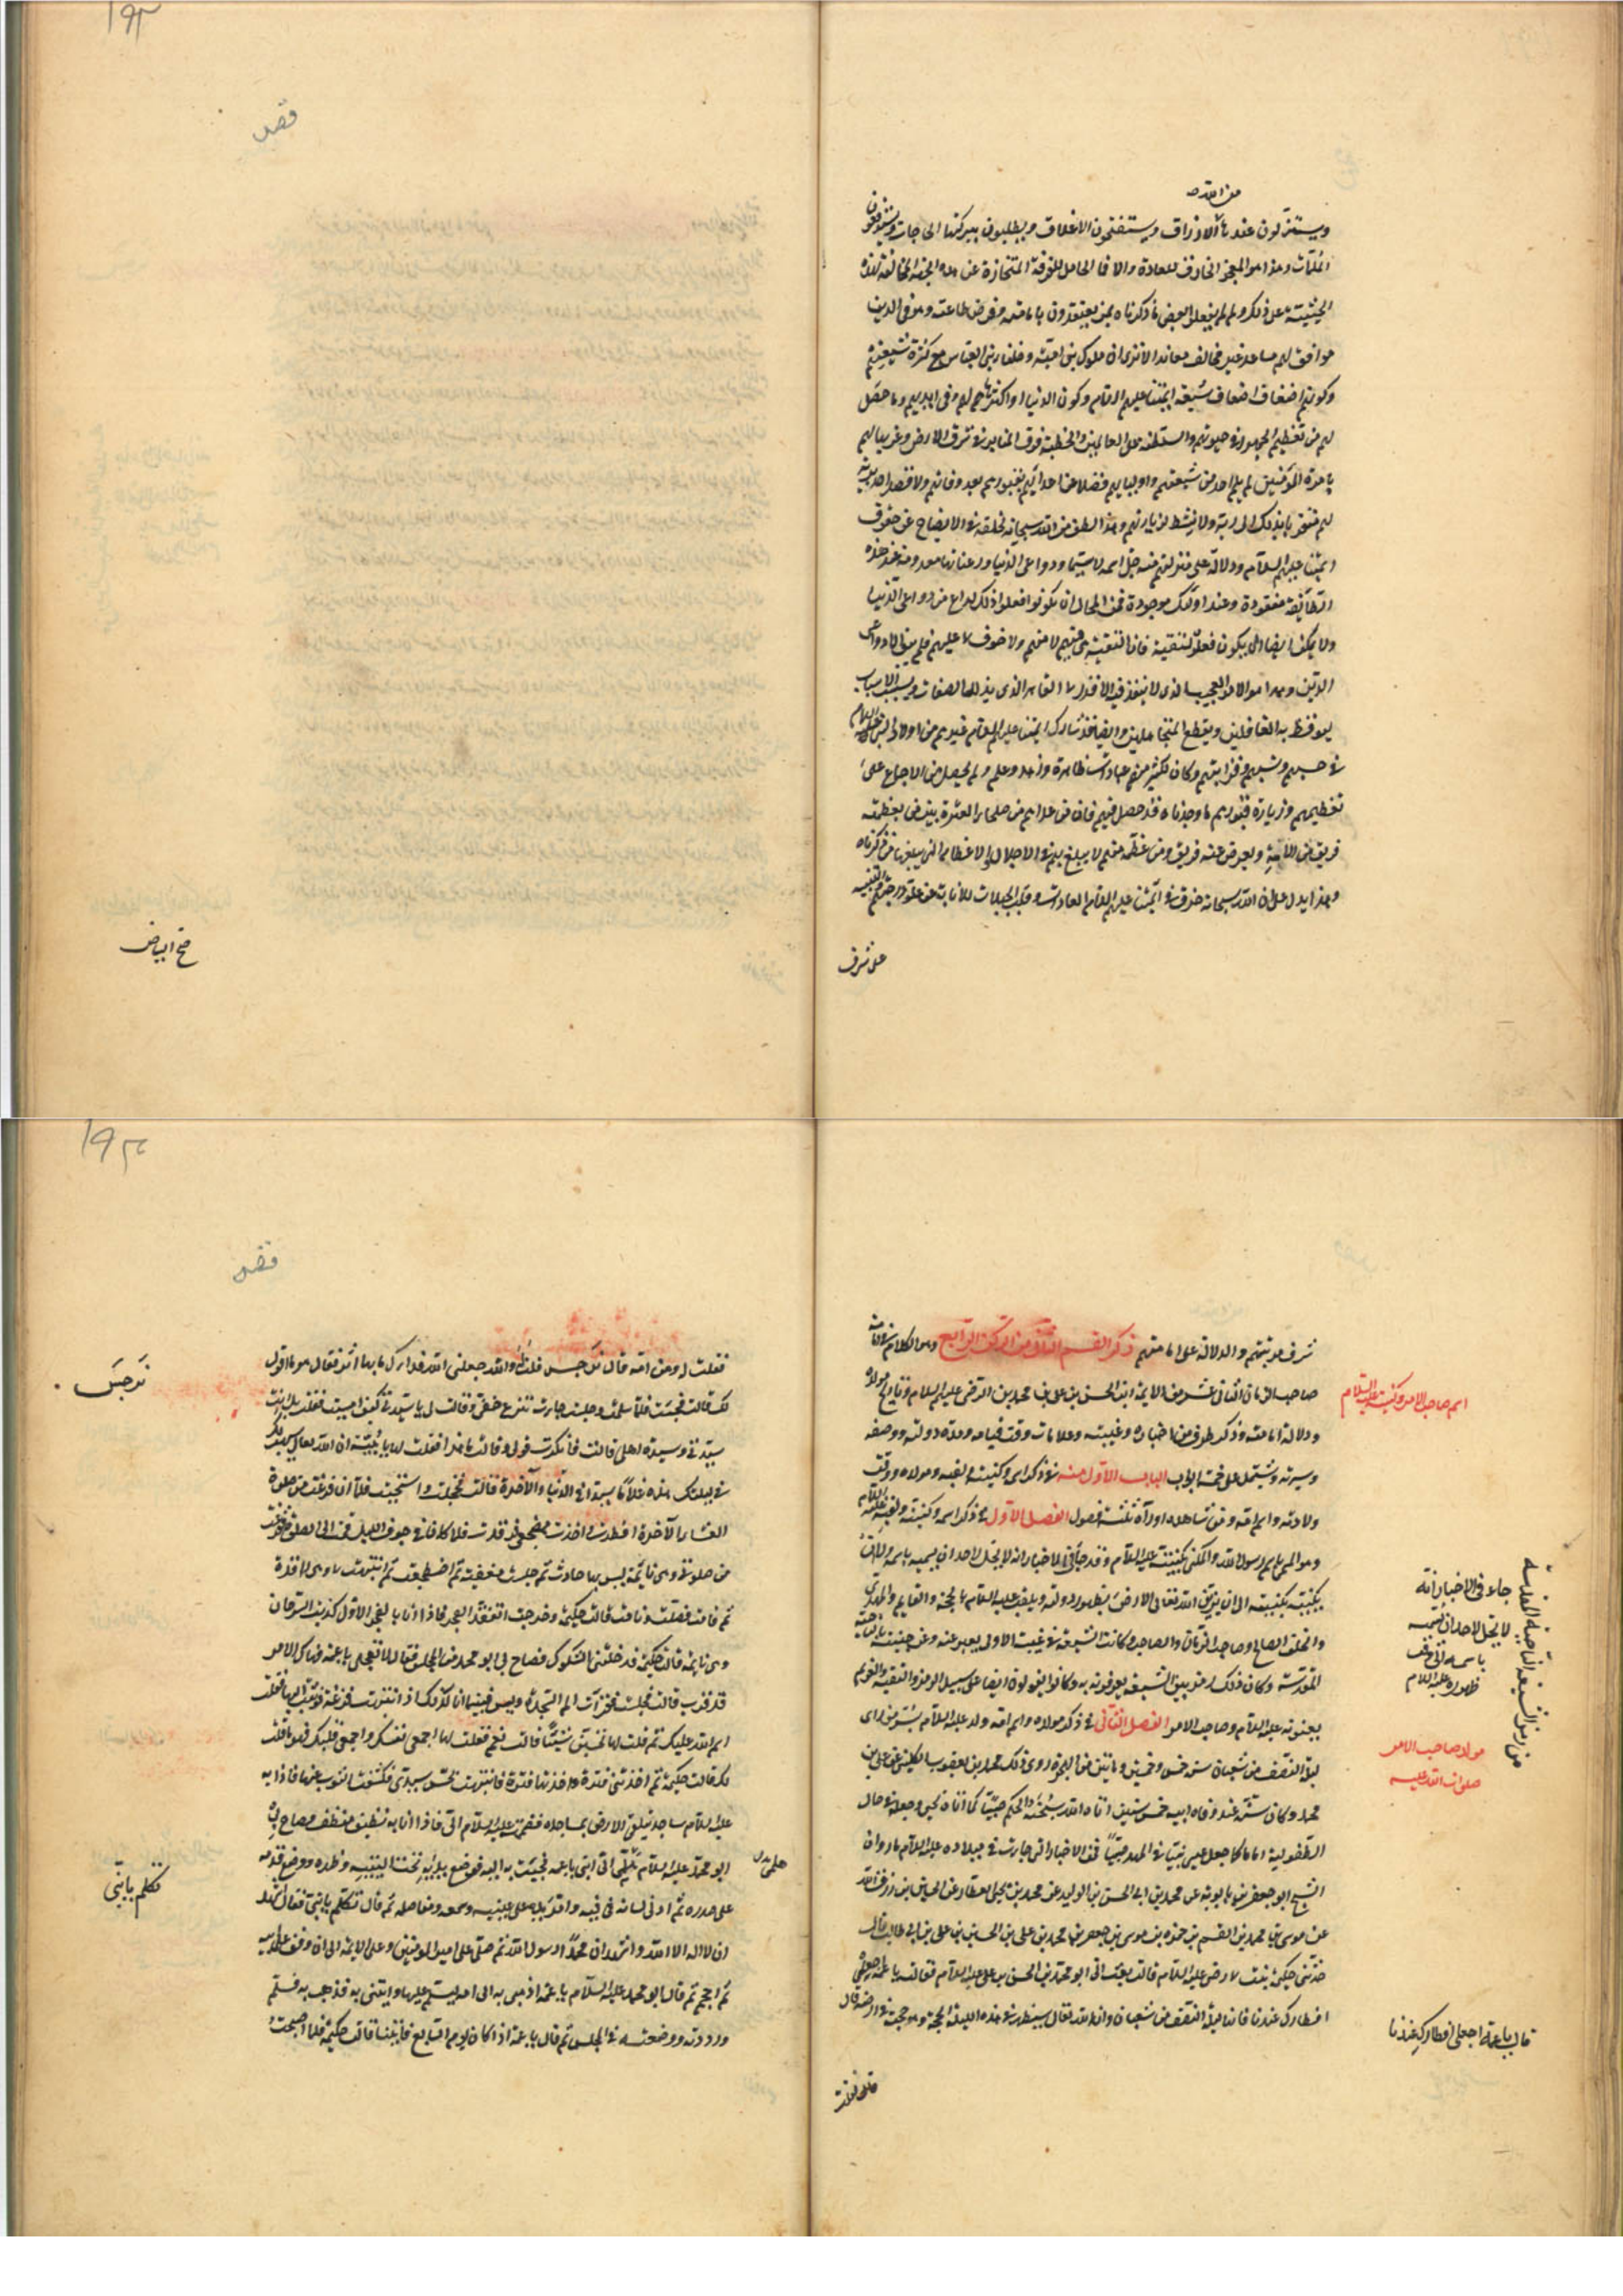 من الله
ويستنزلون عندها الارزاق ويستفتحون الاغلاق ويطلبون ببركتها الحاجات ويستدفعون
الملمات وهذا هو المعجز الخارق للعادة والا فما الحامل للفرقة المنحازة عن هذه الجهة المخالفة لهذه
الجنبة على ذلك ولم لم يفعلوا بعض ما ذكرناه بمن يعتقدون بامامته وفرض طاعته وهو في الدين
موافق لهم مساعد غير مخالف معاند الا ترى ان ملوك بني امية وخلفاء بني العباس مع كثرة شيعتهم
وكونهم اضعاف اضعاف شيعة ائمتنا عليهم السلام وكون الدنيا او اكثرها لهم وفي ايديهم وما حصل
لهم من تعظيم الجمهور في حيوتهم والسلطنة على العالمين والخطبة فوق المنابر في شرق الارض وغربها لهم
بامرة المؤمنين لم يلم احد من شيعتهم واوليائهم فضلا عن اعدائهم بقبورهم بعد وفاتهم ولا قصد احد تربة
لهم متقربا بذلك الى ربه ولا نشط لزيارتهم وهذا لطف من الله سبحانه لخلقه في الايضاح عن حقوق
ائمتنا عليهم السلام ودلالة على منزلتهم منه جل اسمه لا سيما ودواعي الدنيا ورغباتها معدومة عند هذه
الطائفة مفقودة وعند اولئك موجودة فمن المحال ان يكونوا فعلوا ذلك لداع من دواعي الدنيا
ولا يمكن ايضا ان يكون فعلوه لتقية فان التقية هي فيهم لا منهم ولا خوف من جهتهم فلم يبق الا دواعي
الدين وهذا هو الامر العجيب الذي لا ينفذ فيه الا قدرة القاهر الذي يذلل الصعاب ويسبب الاسباب
ليوقظ به الغافلين ويقطع المتجاهلين وايضا فقد شارك ائمتنا عليهم السلام غيرهم من اولاد النبي عليه السلام
في حسبهم ونسبهم وقرابتهم وكان لكثير منهم عبادات ظاهرة وزهد وعلم ولم يحصل من الاجماع على
تعظيمهم وزيارة قبورهم ما وجدناه قد حصل فيهم فان من عداهم من صلحاء العترة بين من يعظمه
فريق من الامة ويعرض عنه فريق ومن عظمه منهم لا يبلغ بهم في الاجلال والاعظام الى الغاية فيمن ذكرناه
وهذا يدل على ان الله سبحانه خرق في ائمتنا عليهم السلام العادات وقلب الجبلات للابانة عن علو درجتهم والتنبيه
على شرف
١٩٢
صح البياض
شرف مرتبتهم والدلالة على امامتهم ذكر القسم الثاني من الركن الرابع وهو الكلام في امامة
صاحب الزمان الثاني عشر من الايمة ابن الحسن بن علي بن محمد بن الرضى عليهم السلام وتاريخ مولده
ودلالة امامته وذكر طرف من اخباره وغيبته وعلامات وقت قيامه ومدة دولته ووصفه
وسيرته ويشتمل على خمسة ابواب الباب الاول منه في ذكر اسمه وكنيته ولقبه ومولده ووقت
ولادته واسم امه ومن شاهده او رآه ثلثة فصول الفصل الاول في ذكر اسمه وكنيته ولقبه عليه السلام
وهو المسمى باسم رسول الله والمكنى بكنيته عليه السلام وقد جاء في الاخبار انه لا يحل لاحد ان يسميه باسمه ولا ان
يكنيه بكنيته الى ان يزين الله تعالى الارض بظهور دولته ويلقب عليه السلام بالحجة والقايم والمهدي
والخلف الصالح وصاحب الزمان والصاحب وكانت الشيعة في غيبته الاولى يعبر عنه وعن غيبته بالناحية
المقدسة وكان ذلك رمزا بين الشيعة يعرفونه به وكانوا يقولون ايضا على سبيل الرمز والتقية الغريم
يعنونه عليه السلام وصاحب الامر الفصل الثاني في ذكر مولده واسم امه ولد عليه السلام بسر من راى
ليلة النصف من شعبان سنة خمس وخمسين ومايتين من الهجرة روى ذلك محمد بن يعقوب الكليني عن علي بن
محمد وكان سنه عند وفاة ابيه خمس سنين اتاه الله سبحانه الحكم صبيا كما اتاه يحيى وجعله في حال
الطفولية اماما كما جعل عيسى نبيا في المهد صبيا فمن الاخبار التي جاءت في ميلاده عليه السلام ما رواه
الشيخ ابو جعفر بن بابويه عن محمد بن الحسن بن الوليد عن محمد بن يحيى العطار عن الحسين بن رزق الله
عن موسى بن محمد بن القسم بن حمزة بن موسى بن جعفر بن محمد بن علي بن الحسين بن علي بن ابي طالب قال
حدثتني حكيمة بنت محمد بن علي الرضى عليه السلام قالت بعث الي ابو محمد الحسن بن علي عليه السلام فقال يا عمة اجعلي
افطارك عندنا فانها ليلة النصف من شعبان وان الله تعالى سيظهر في هذه الليلة الحجة وهو حجته في ارضه قال
فقلت له
اسم صاحب الامر وكنيته عليه السلام
جاء في الاخبار انه
لا يحل لاحد ان يسميه
باسمه الى وقت
ظهوره عليه السلام
من رموز الشيعة الناحية المقدسة
مولد صاحب الامر
صلوات الله عليه
قال يا عمة اجعلي افطارك عندنا
١٩٣
فقلت له ومن امه قال نرجس قلت له والله جعلني الله فداك ما بها اثر فقال هو ما اقول
لك قالت فجئت فلما سلمت وجلست جاءت تنزع خفي وقالت لي يا سيدتي كيف امسيت فقلت بل انت
سيدتي وسيدة اهلي قالت فانكرت قولي وقالت ما هذا فقلت لها يا بنية ان الله تعالى سيهب لك
في ليلتك هذه غلاما سيدا في الدنيا والآخرة قالت فخجلت واستحيت فلما ان فرغت من صلوة
العشاء الآخرة افطرت واخذت مضجعي فرقدت فلما كان في جوف الليل قمت الى الصلوة ففرغت
من صلوتي وهي نايمة ليس بها حادث ثم جلست معقبة ثم اضطجعت ثم انتبهت وهي راقدة
ثم قامت فصلت ونامت قالت حكيمة وخرجت اتفقد الفجر فاذا انا بالفجر الاول كذنب السرحان
وهي نايمة قالت حكيمة فدخلتني الشكوك فصاح بي ابو محمد من المجلس فقال لا تعجلي يا عمة فهاك الامر
قد قرب قالت فجلست فقرأت الم السجدة ويس فبينما انا كذلك اذ انتبهت فزعة فوثبت اليها فقلت
اسم الله عليك ثم قلت لها تحسين شيئا قالت نعم فقلت لها اجمعي نفسك واجمعي قلبك فهو ما قلت
لك قالت حكيمة ثم اخذتني فترة واخذتها فترة فانتبهت بحس سيدي فكشفت الثوب عنها فاذا به
عليه السلام ساجد يتلقى الارض بمساجده فضممته عليه السلام الي فاذا انا به نظيف منظف فصاح بي
ابو محمد عليه السلام هلمي الي ابني يا عمة فجئت به اليه فوضع يديه تحت اليتيه وظهره ووضع قدميه
على صدره ثم ادلى لسانه في فيه وامر يده على عينيه وسمعه ومفاصله ثم قال تكلم يا بني فقال اشهد
ان لا اله الا الله واشهد ان محمدا رسول الله ثم صلى على امير المؤمنين وعلى الايمة الى ان وقف على ابيه
ثم احجم ثم قال ابو محمد عليه السلام يا عمة اذهبي به الى امه ليسلم عليها وايتني به فذهبت به فسلم
ورددته ووضعته في المجلس ثم قال يا عمة اذا كان يوم السابع فأتينا قالت حكيمة فلما اصبحت
نرجس
هلمي
تكلم يا بني